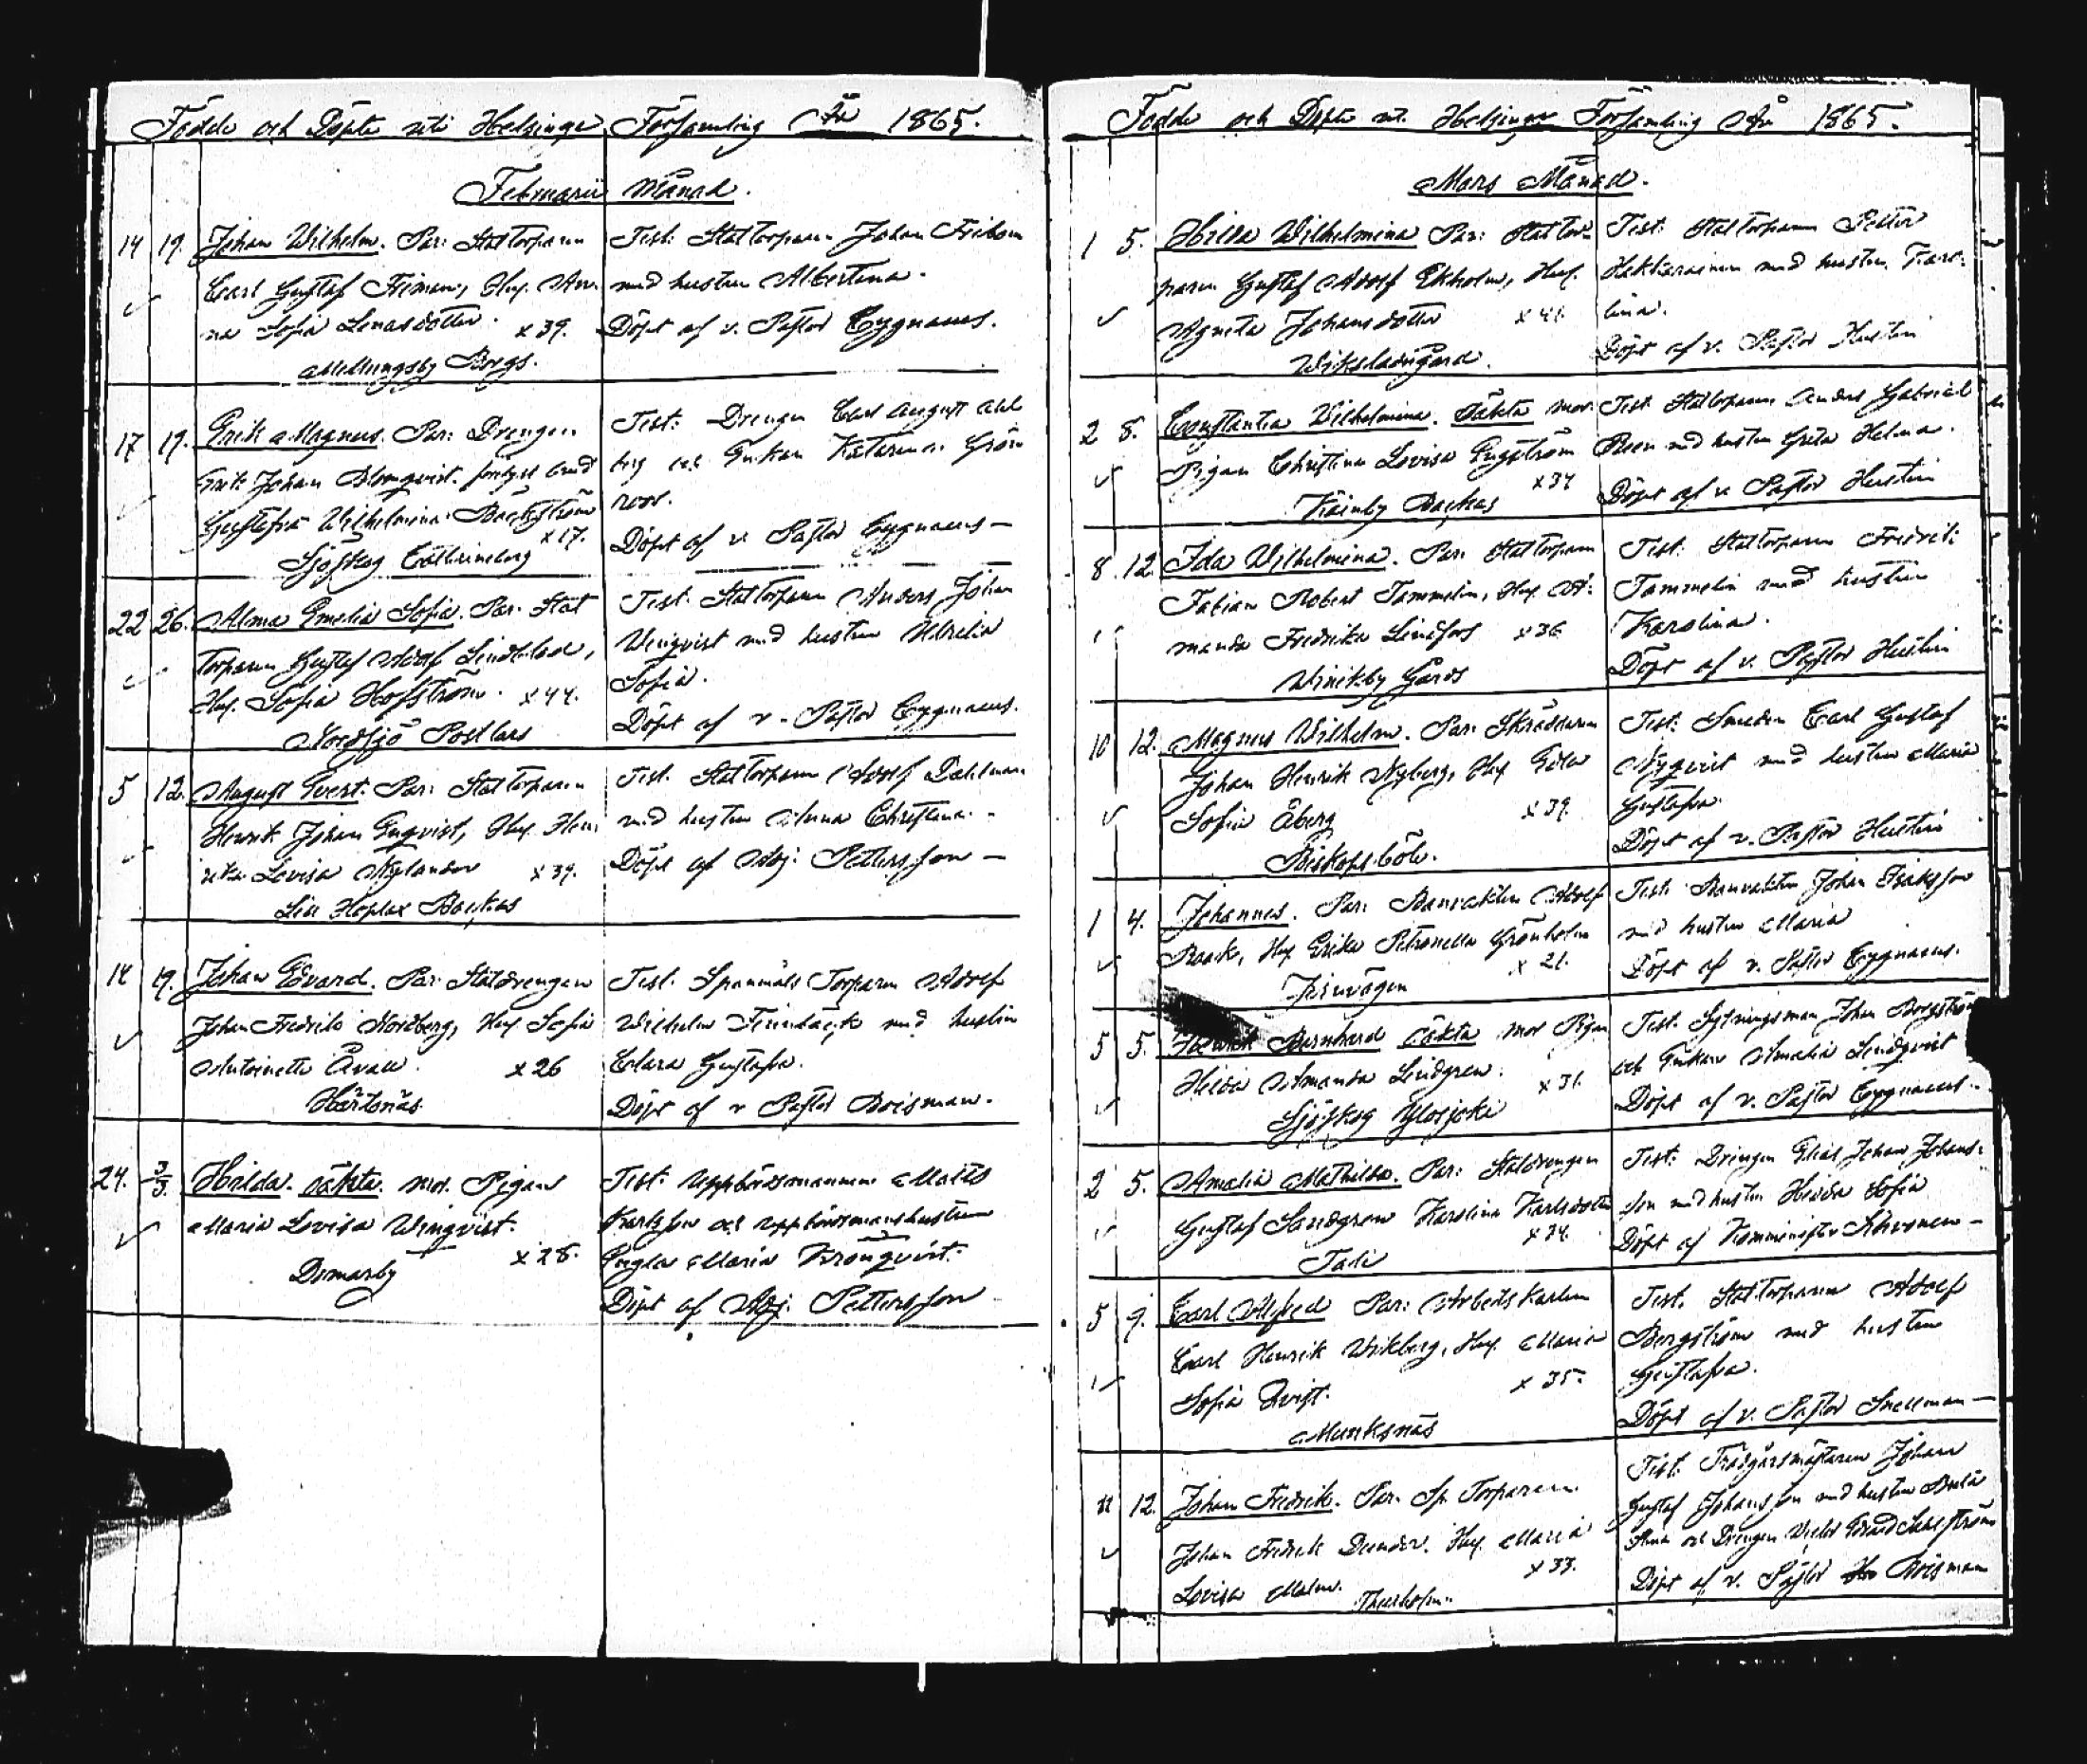 Födde och Döpte uti Helsinge Församling År 1865.
Februarii Månad.
14 19. Johan Wilhelm. Par: Stattorparen
Carl Gustaf Friman, Hu. An-
na Sofia Lenasdotter. x39.
Mellungsby Borgs.
Test: Stattorparen Johan Fribom
med hustru Albertina.
Döpt af v. Pastor Cygnaeus.
17 19. Erik Magnus. Par: Drengen
Erik Johan Blomqvist
Gustafva Wilhelmina Bäckström
x17.
Sjöskog
Test: Drengen Carl August Ahl
berg och Enkan Katarina Grön
roos.
Döpt af v. Pastor Cygnaeus —
22 26. Alma Emelia Sofia. Par. Stat
torparen Gustaf Adolf Lindblad,
Hu. Sofia Hoffström. x44.
Nordsjö Postlars
Test. Stattorparen Anders Johan
Winqvist med hustru Ulrika
Sofia.
Döpt af v. Pastor Cygnaeus.
5 12. August Evert. Par: Stattorparen
Henrik Johan Engqvist, Hu. Hen
rika Lovisa Nylander x39.
Lill Hoplax Backas
Test. Stattorparen Adolf Dahlman
med hustru Anna Christina.
Döpt af Adj. Pettersson —
14 19. Johan Edvard. Par: Staldrengen
Johan Fredrik Nordberg, Hu. Sofia
Antoinette x26
Hertonäs.
Test. Spanmåls Torparen Adolf
Wilhelm med hustru
Clara Gustafva.
Döpt af v Pastor Boisman.
24. 3/3. Hilda. oäkta. mod. Pigan
Maria Lovisa Winqvist.
x28.
Domarby
Test: Uppbördsmannen Matts
Karlsson och uppbördsmanshustrun
Engla Maria Kronqvist.
Döpt af Adj. Pettersson
Födde och Döpte uti Helsinge Församling År 1865.
Mars Månad.
1 5. Hilda Wilhelmina Par: Stattor-
paren Gustaf Adolf Ekholm, Hu.
Agneta Johansdotter x41.
Wiksladugård.
Test: Stattorparen Petter
Hakkarainen med hustru Karo-
lina.
Döpt af v. Pastor Hustin
2 8. Constantia Wilhelmina. Oäkta mor:
Pigan Christina Lovisa Engström
x34
Backas
Test. Stattorparen Anders Gabriel
Reen med hustru Greta Helena.
Döpt af v Pastor Hustin
8 12 Ida Wilhelmina. Par. Stattorparen
Fabian Robert Tammelin, Hu. A-
manda Fredrika Lindfors x36
Winikby Gårds
Test: Stattorparen Fredrik
Tammelin med hustru
Karolina.
Döpt af v. Pastor Hustin
10 12. Magnus Wilhelm. Par: Skräddaren
Johan Henrik Nyberg, Hu Edla
Sofia Åberg x39.
Biskopsböle.
Test. Smeden Carl Gustaf
Nyqvist med hustru Maria
Gustafva.
Döpt af v. Pastor Hustin
1 4. Johannes. Par: Banvakten Adolf
Raak, Hu. Erika Petronella Grönholm
x 21.
Jernvägen
Test: Banvakten Johan Isaksson
med hustru Maria
Döpt af v. Pastor Cygnaeus.
5 5. Bernhard oäkta mor Pigan
Hilda Amanda Lindgren. x31.
Sjöskog Ylosjoki
Test. Sytningsman Johan Bergström
och Enkan Amalia Lindqvist
Döpt af v. Pastor Cygnaeus.
2 5. Amalia Mathilda. Par: Staldrengen
Gustaf Sandgren Karolina Karlsdotter
x34.
Tali
Test: Drengen Elias Johan Johans-
son med hustru Hedda Sofia
Döpt af Komminister —
5 9. Carl Alfred Par: Arbets karlen
Carl Henrik Wikberg, Hu. Maria
Sofia Qvist. x 35.
Munksnäs
Test. Stattorparen Adolf
Bergström med hustru
Gustafva.
Döpt af v. Pastor Snellman —
11 12. Johan Fredrik. Par. Sp. Torparen
Johan Fredrik Dunder. Hu. Maria
Lovisa Malm. x33.
Thurholm.
Test: Trädgårsmästaren Johan
Gustaf Johansson med hustru
och Drengen Edvard
Döpt af v. Pastor Boisman